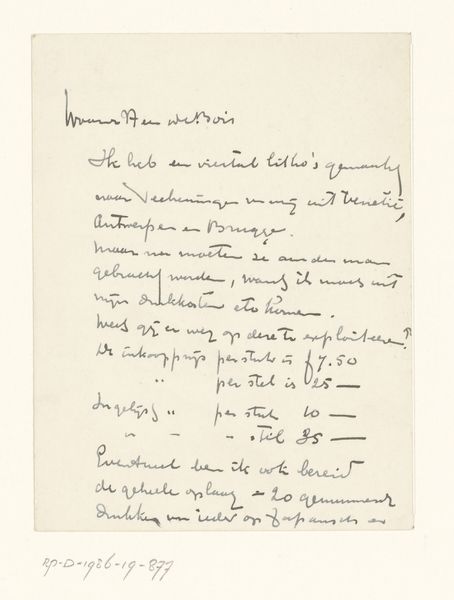 Waarde Heer de Bois
Ik heb een viertal litho's gemaakt
naar Teekeningen van mij uit Venetië,
Antwerpen en Brugge.
Maar nu moeten ze aan den man
gebracht worden, want ik moet uit
mijn drukkosten etc komen.
Weet gij er weg op deze te exploiteeren?
De inkoopprijs per stuk is f 7.50
" per stel is 25 —
" per stuk 10 —
" — " stel 35 —
Eventueel ben ik ook bereid
de geheele oplaag = 20 genummerde
drukken van ieder op Japansch en
RP-D-1986-19-877